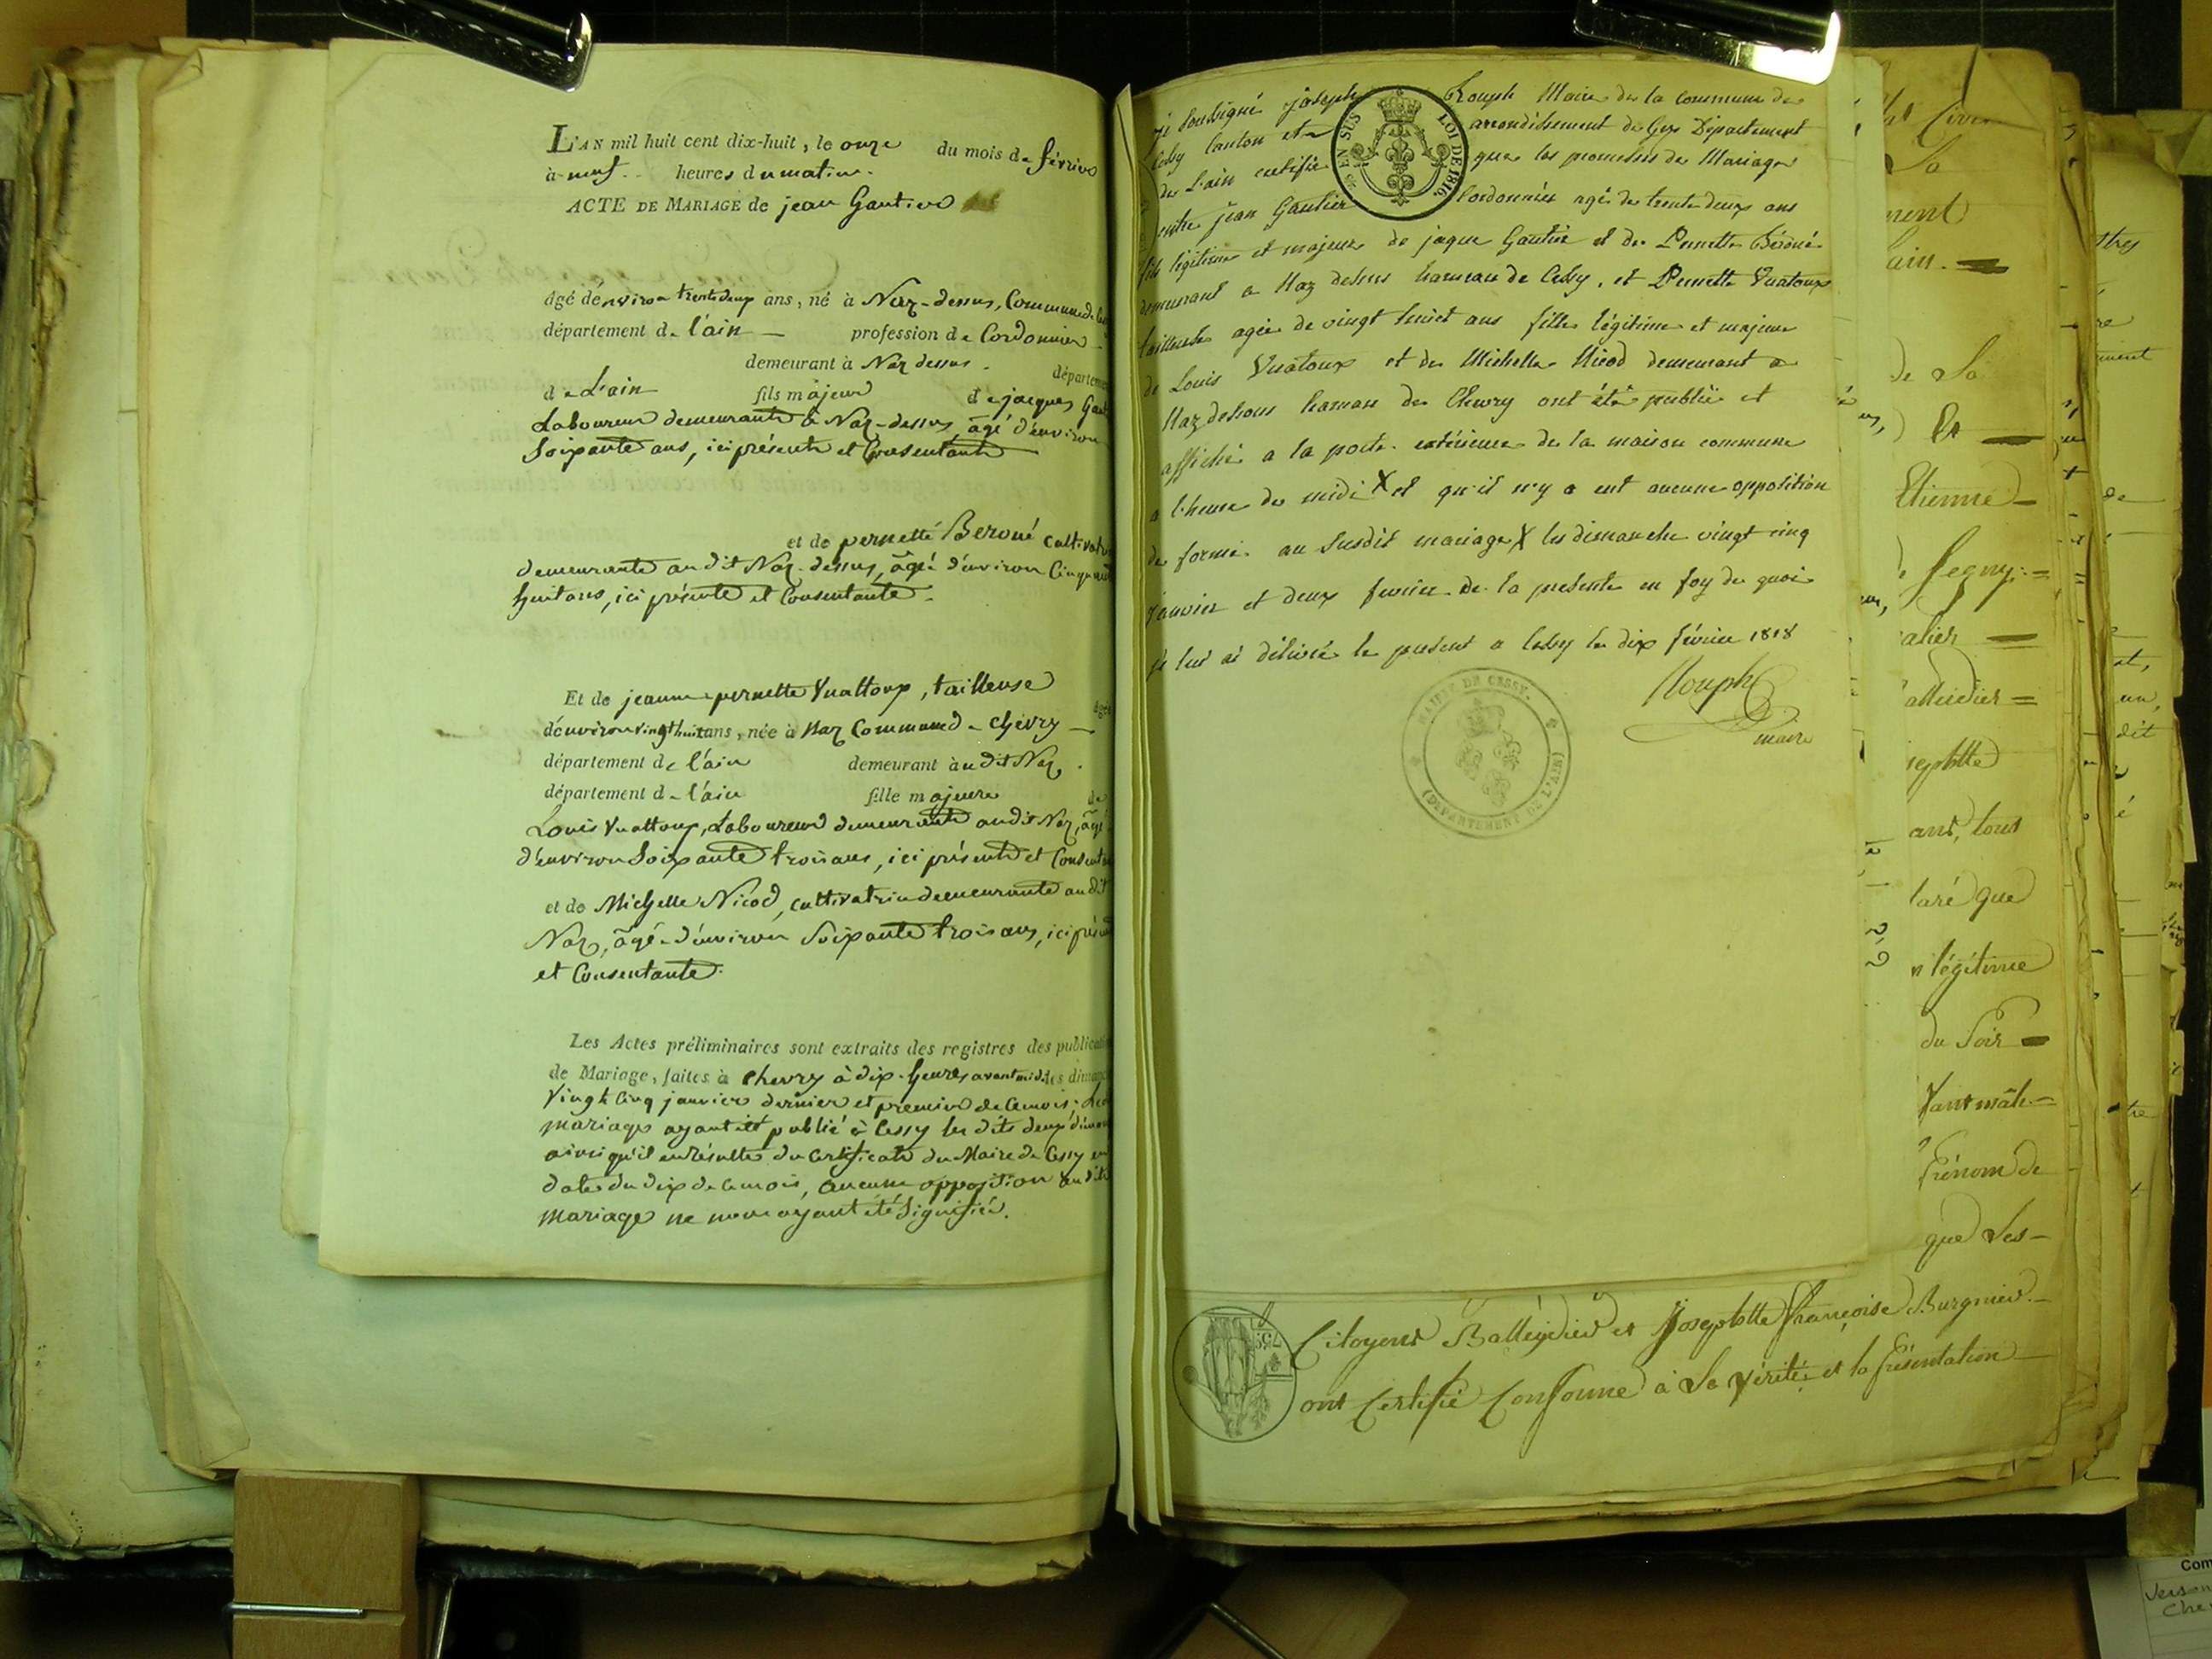 L'AN mil huit cent dix-huit, le onze du mois de février
à neuf heures du matin.
ACTE DE MARIAGE de jean Gautier
âgé d'environ trente deux ans, né à Naz-dessus, Commune de
département de l'ain — profession de Cordonnier
demeurant à Naz dessus. départem
de L'ain fils majeur de jacques Gau
Laboureur demeurante à Naz-dessus, âgé d'environ
Soixante ans, ici présente et Consentante
et de pernette Beroné cultivatri
demeurante au dit Naz-dessus, âgé d'environ Cinquante
huit ans, ici présente et Consentante.
Et de jeanne pernette Vuattoux, tailleuse
âgée
d'environ vingt huit ans, née à Naz Commune de Chevry —
département de l'ain demeurant au dit Naz,
département de l'ain fille majeure de
Louis Vuattoux, Laboureur demeurante audit Naz, âgé
d'environ Soixante trois ans, ici présente et Consent
et de Michelle Nicod, cultivatrice demeurante au dit
Naz, âgé d'environ Soixante trois ans, ici prés
et Consentante.
Les Actes préliminaires sont extraits des registres des publicati
de Mariage, faites à Chevry à dix heures avant midi les diman
Vingt Cinq janvier dernier et premier de Cemois; 
mariage ayant été publié à Cessy les dits deux diman
ainsi qu'il en résulte du Certificate du Maire de Cessy en
date du dix de Cemois, aucune opposition au dit
mariage ne nous ayant été Signifiée.
je soussigné joseph Rouph Maire de la commune de
Cessy Canton et arrondissement de Gex Département
de L'ain certifie que les promesses de Mariage
entre jean Gautier Cordonnier agé de trente deux ans
fils légitime et majeur de jaque Gautier et de Pernette Béroné
demeurant a Naz dessus hameau de Cessy, et Pernette Vuatoux
tailleuse agée de vingt huiet ans fille légitime et majeure
de Louis Vuatoux et de Michelle Nicod demeurant a
Naz dessous hamau de Chevry ont été publié et
affiché a la porte extérieure de la maison commune
a l'heure de midi X et qu'il n'y a eut aucune opposition
de formé au susdit mariage X les dimanche vingt cinq
janvier et deux fevrier de la presente en foy de quoi
je lui ai délivré le présent a Cessy le dix février 1818
Rouph
maire
EN SUS LOI DE 1816
MAIRIE DE CESSY.
(DEPARTEMENT DE L'AIN)
La
ain.
de La
Etienne
Segny.
alier
ant, tous
laré que
légitime
du Soir
Prénom de
que Les
75
Citoyens Balleydier et Josephtte Françoise Burgnier
ont Certifié Conforme à La Vérité et la présentation
Com